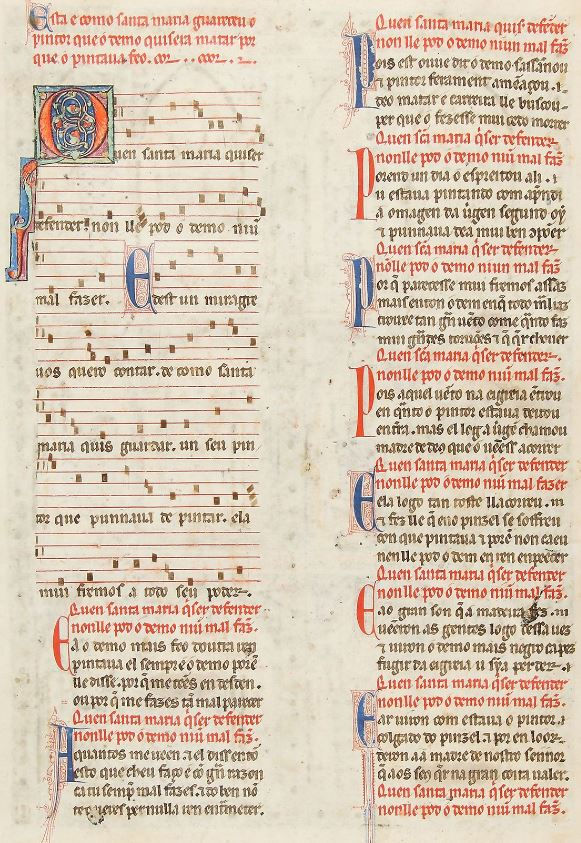 Esta e como santa maria guareceu o
pintor que o demo quisera matar por
que o pintaua feo.
Quen santa maria quiser
defender non lle pod o demo niũ
mal fazer. E dest un miragre
uos quero contar. de como santa
maria quis guardar. un seu pin
tor que punnaua de pintar. ela
mui fremosa a todo seu poder.
Quen santa maria q̇ser defender
nonlle pod o demo niũ mal faz̃.
E a o demo mais feo doutra ren
pintaua el sempre o demo porẽ
lle disse. por q̇ me tẽes en desden.
ou por q̇ me fazes tã mal pareçer
Quen santa maria q̇ser defender
nonlle pod o demo niũ mal faz̃.
A quantos me ueen. ⁊ el diss entõ
esto que ch eu faço e cõ grã razon
ca tu semp̃ mal fazes. ⁊ do ben nõ
te queres per nulla ren entrmeter.
Quen santa maria quis defender
non lle pod o demo niun mal faz̃
Pois est ouue dit o demo sassannou
⁊ o pintor ferament ameaçou. ⁊
deo matar e carreira lle buscou
per que o fezesse mui cedo morrer
Quen sc̃a maria q̇ser defender
nonlle pod o demo niũ mal faz̃.
Porend un dia o espreitou ali. ⁊
u estaua pintando com aprẽdi
a omagen da uirgen segund oỹ
⁊ punnaua dea mui ben cõpõer
Quen sc̃a maria q̇ser defender
nõlle pod o demo niun mal faz̃
Por q̇ pareçesse mui fremosa assaz
mais enton o dem en q̇ todo mal iaz
trouxe tan grã uẽto come q̇ndo faz
mui grãdes toruões ⁊ q̇ quer chouer
Quen sc̃a maria q̇ser defender.
nonlle pod o demo niũ mal faz̃.
Pois aquel uẽto na eigreia ẽtrou
en q̇nto o pintor estaua deitou
en t̃ra. mas el log a uirgẽ chamou
madre de deus que o uẽess acorrer
Quen santa maria q̇ser defender
nonlle pod o demo niũ mal fazer
E ela logo tan toste ll acorreu.
⁊ fez lle q̇ eno pinzel se sofreu
con que pintaua ⁊ porẽ non caeu
nen lle pod o dem en ren enpeecer
Quen santa maria q̇ser defender
nonlle pod o demo niũ mal faz̃.
E ao gran son q̇ a madeira fez.
uẽeron as gentes logo dessa uez
⁊ uiron o demo mais negro ca pez
fugir da eigreia u ss ya perder.
Quen santa maria q̇ser defender
nonlle pod o demo niũ mal faz̃.
E ar uiron com estaua o pintor.
colgado do pinzel. ⁊ por en loor
deron aa madre de nostro sennor
q̇ aos seus q̇r na gran coita ualer.
Quen santa maria q̇ser defender
nonlle pod o demo niũ mal faz̃.